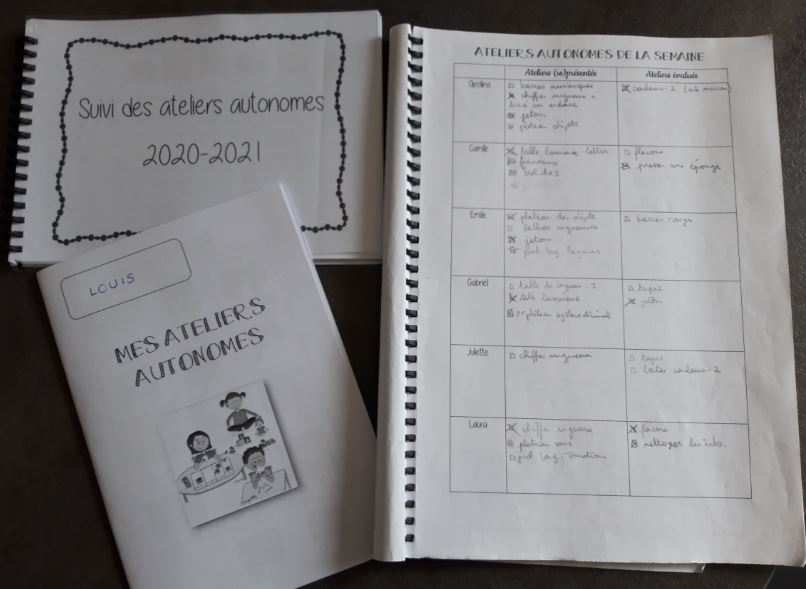 Suivi des ateliers autonomes
2020-2021
LOUIS
MES ATELIERS
AUTONOMES
ATELIERS AUTONOMES DE LA SEMAINE
Ateliers (re)présentés
Ateliers évalués
Apolina
barres numériques
chiffres rugueux +
jetons
plateau objets
couleurs-2
Camille
table lumineuse lettres
soldes
flacons
presser une éponge
Emile
plateau des objets
lettres rugueuses
jetons
barres rouges
Gabriel
table de Seguin - 1
table lumineuse
plateau système décimal
tapis
jetons
Juliette
chiffres rugueux
tapis
boîtes couleurs-2
Laura
chiffres rugueux
plateau sons
émotions
flacons
nettoyer les